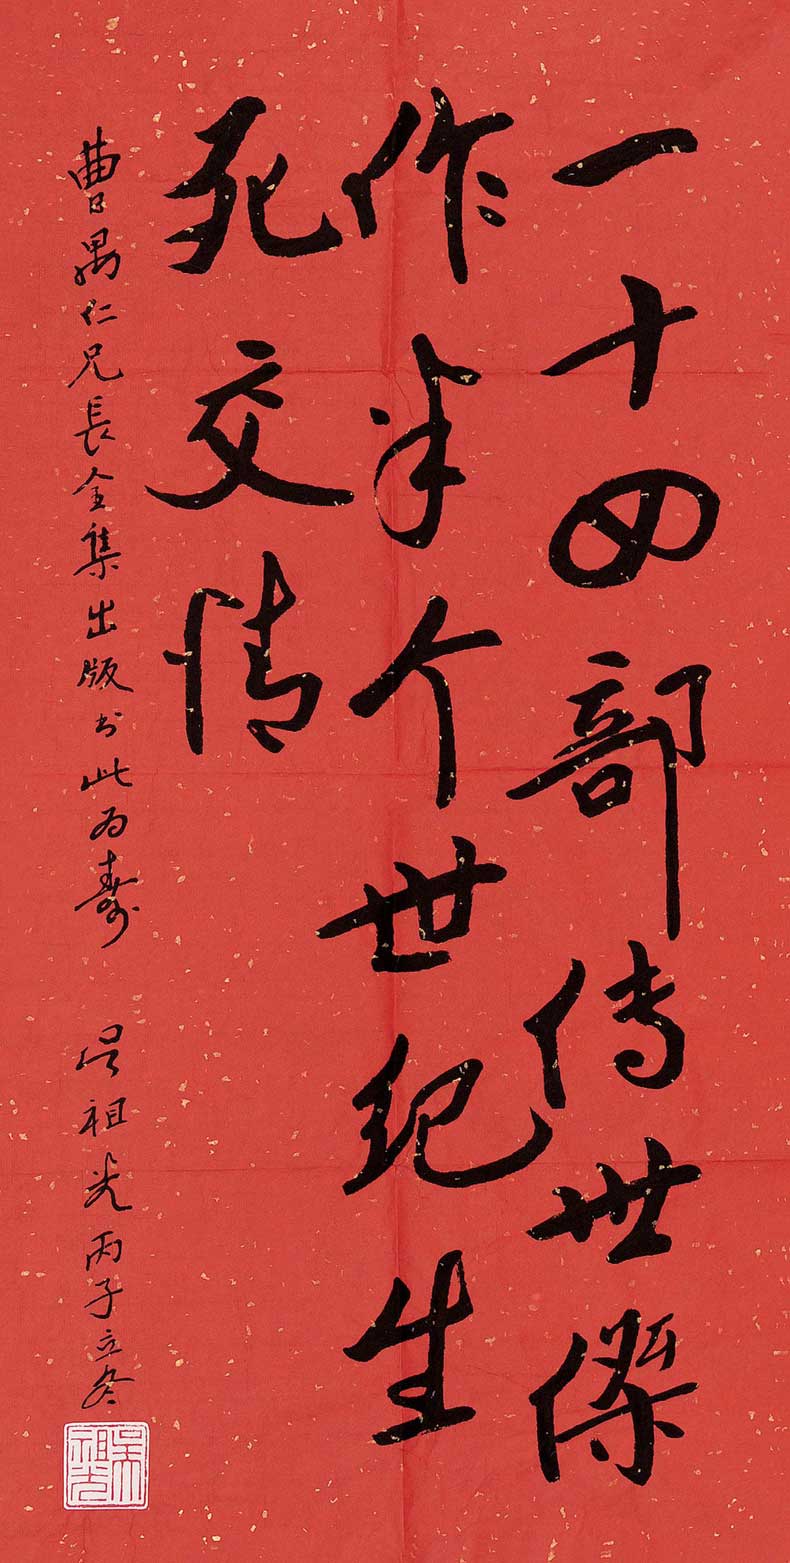 一十四部傳世傑
作半个世纪生
死交情
曹禺仁兄長全集出版书此为壽 吴祖光丙子立冬
吴祖光